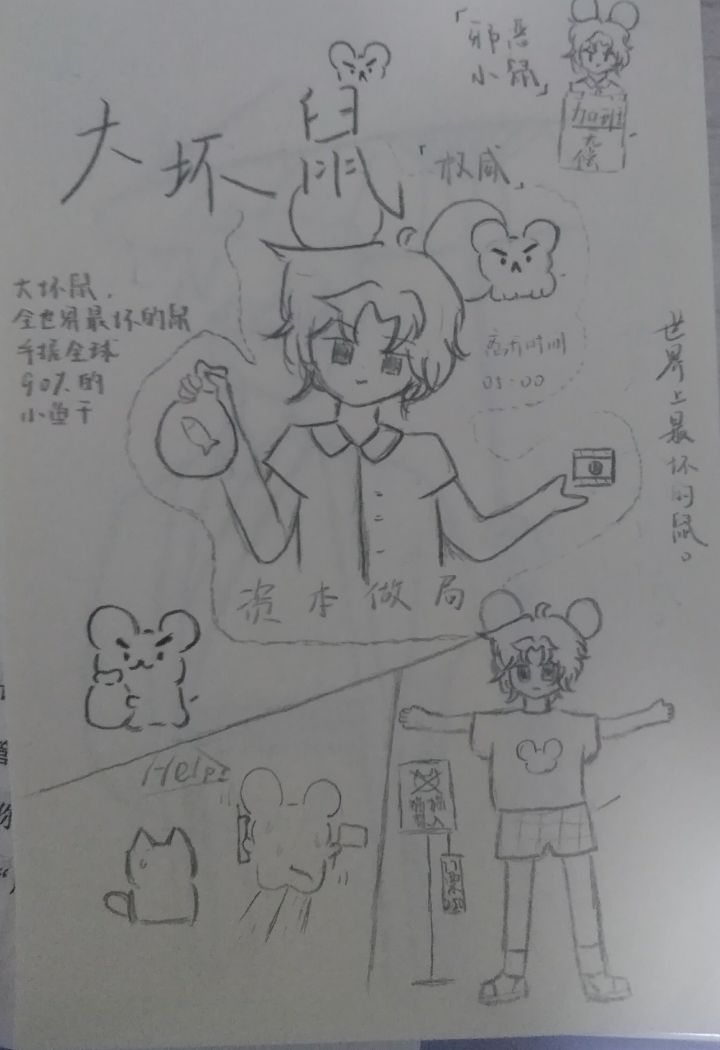 「邪恶
小鼠」
加班
无偿
大坏鼠
「权威」
大坏鼠,
全世界最坏的鼠
手握全球
90%的
小鱼干
时间
03:00
世界上最坏的鼠。
资本做局
Help!